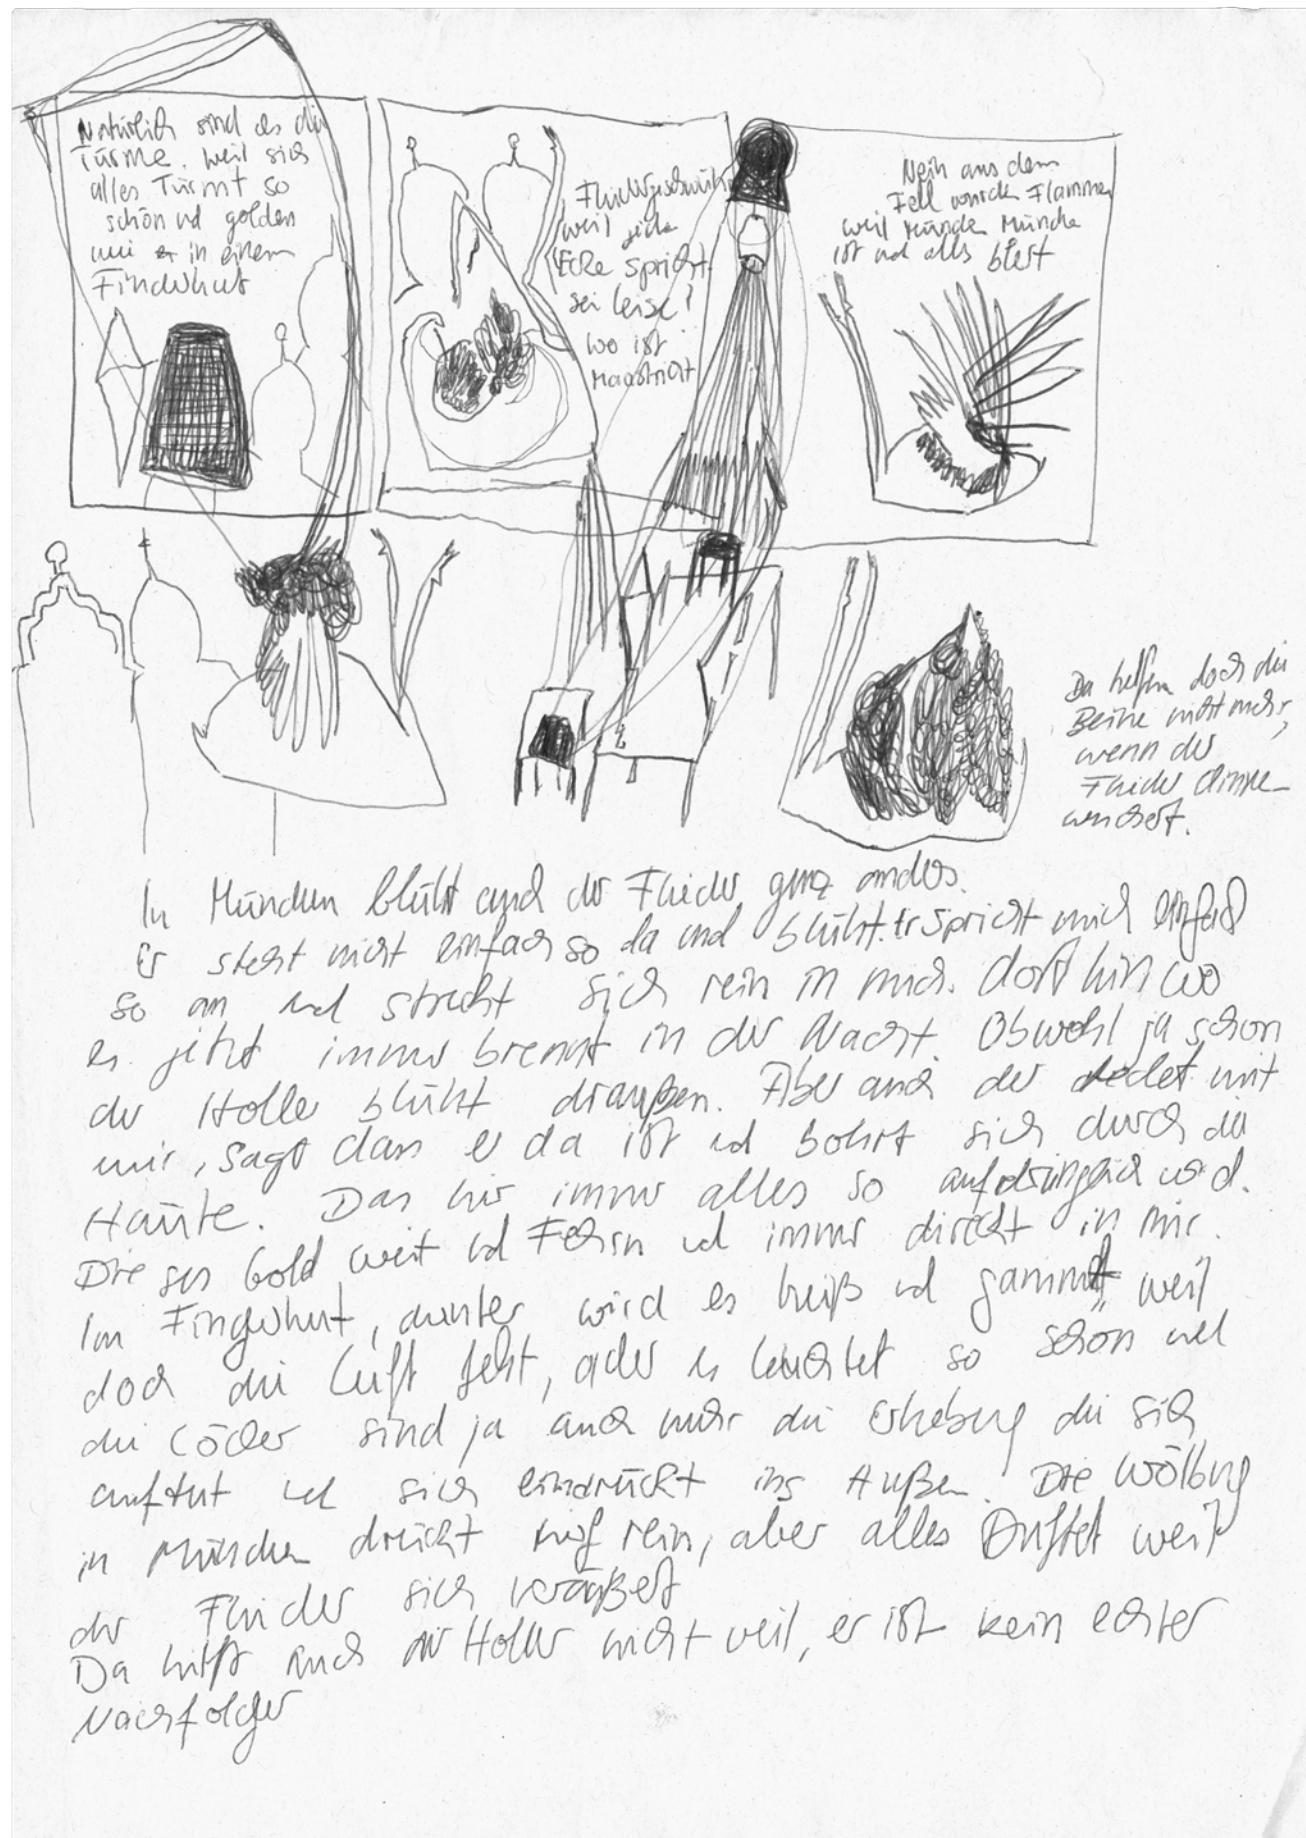 Natürlich sind es die
Türme. weil sich
alles Türmt so
schön und golden
wie in einem
Fingerhut
Fliedergeschwüre
weil jede
Ecke spricht
sei leise!
wo ist
Maastricht
Nein aus dem
Fell wurden Flammen
weil München München
ist und alles bleibt
Da helfen doch die
Beine nicht mehr,
wenn der
Flieder
wuchert.
In München blüht auch der Flieder ganz anders.
Er steht nicht einfach so da und blüht. Er spricht mich einfach
so an und streckt sich rein in mich. Dort hin wo
es jetzt immer brennt in der Nacht. Obwohl ja schon
der Holler blüht draußen. Aber auch der redet mit
mir, sagt dass er da ist und bohrt sich durch die
Häute. Das hier immer alles so aufdringlich wird.
Dieses Gold weit und Fern und immer direkt in mir.
Im Fingerhut, drunter wird es heiß und gammelt weil
doch die Luft fehlt, aber es leuchtet so schön und
die Löcher sind ja auch mehr die Erhebung die sich
auftut und sich eindrückt ins Außen. Die Wölbung
in München drückt tief rein, aber alles Duftet weil
der Flieder sich veräußert
Da hilft auch der Holler nicht weil, er ist kein echter
Nachfolger